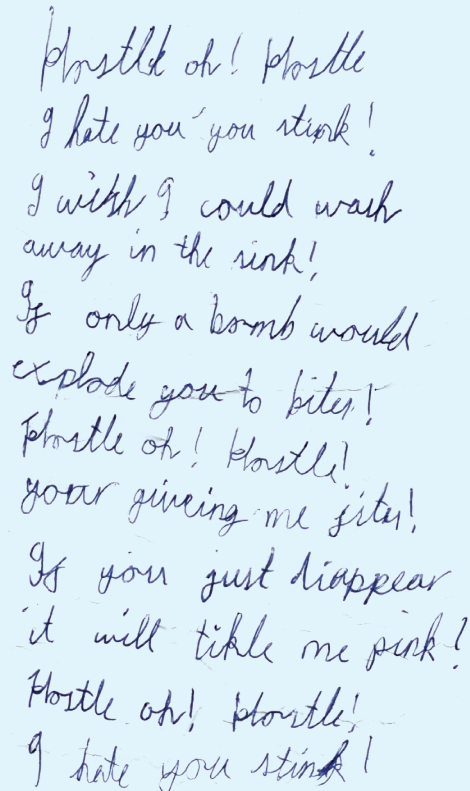 Hostle oh! Hostle
I hate you you stink!
I wish I could wash
away in the sink!
If only a bomb would
explode you to bites!
Hostle oh! Hostle!
your giveing me jits!
If you just diappear
it will tikle me pink!
Hostle oh! Hostle!
I hate you stink!